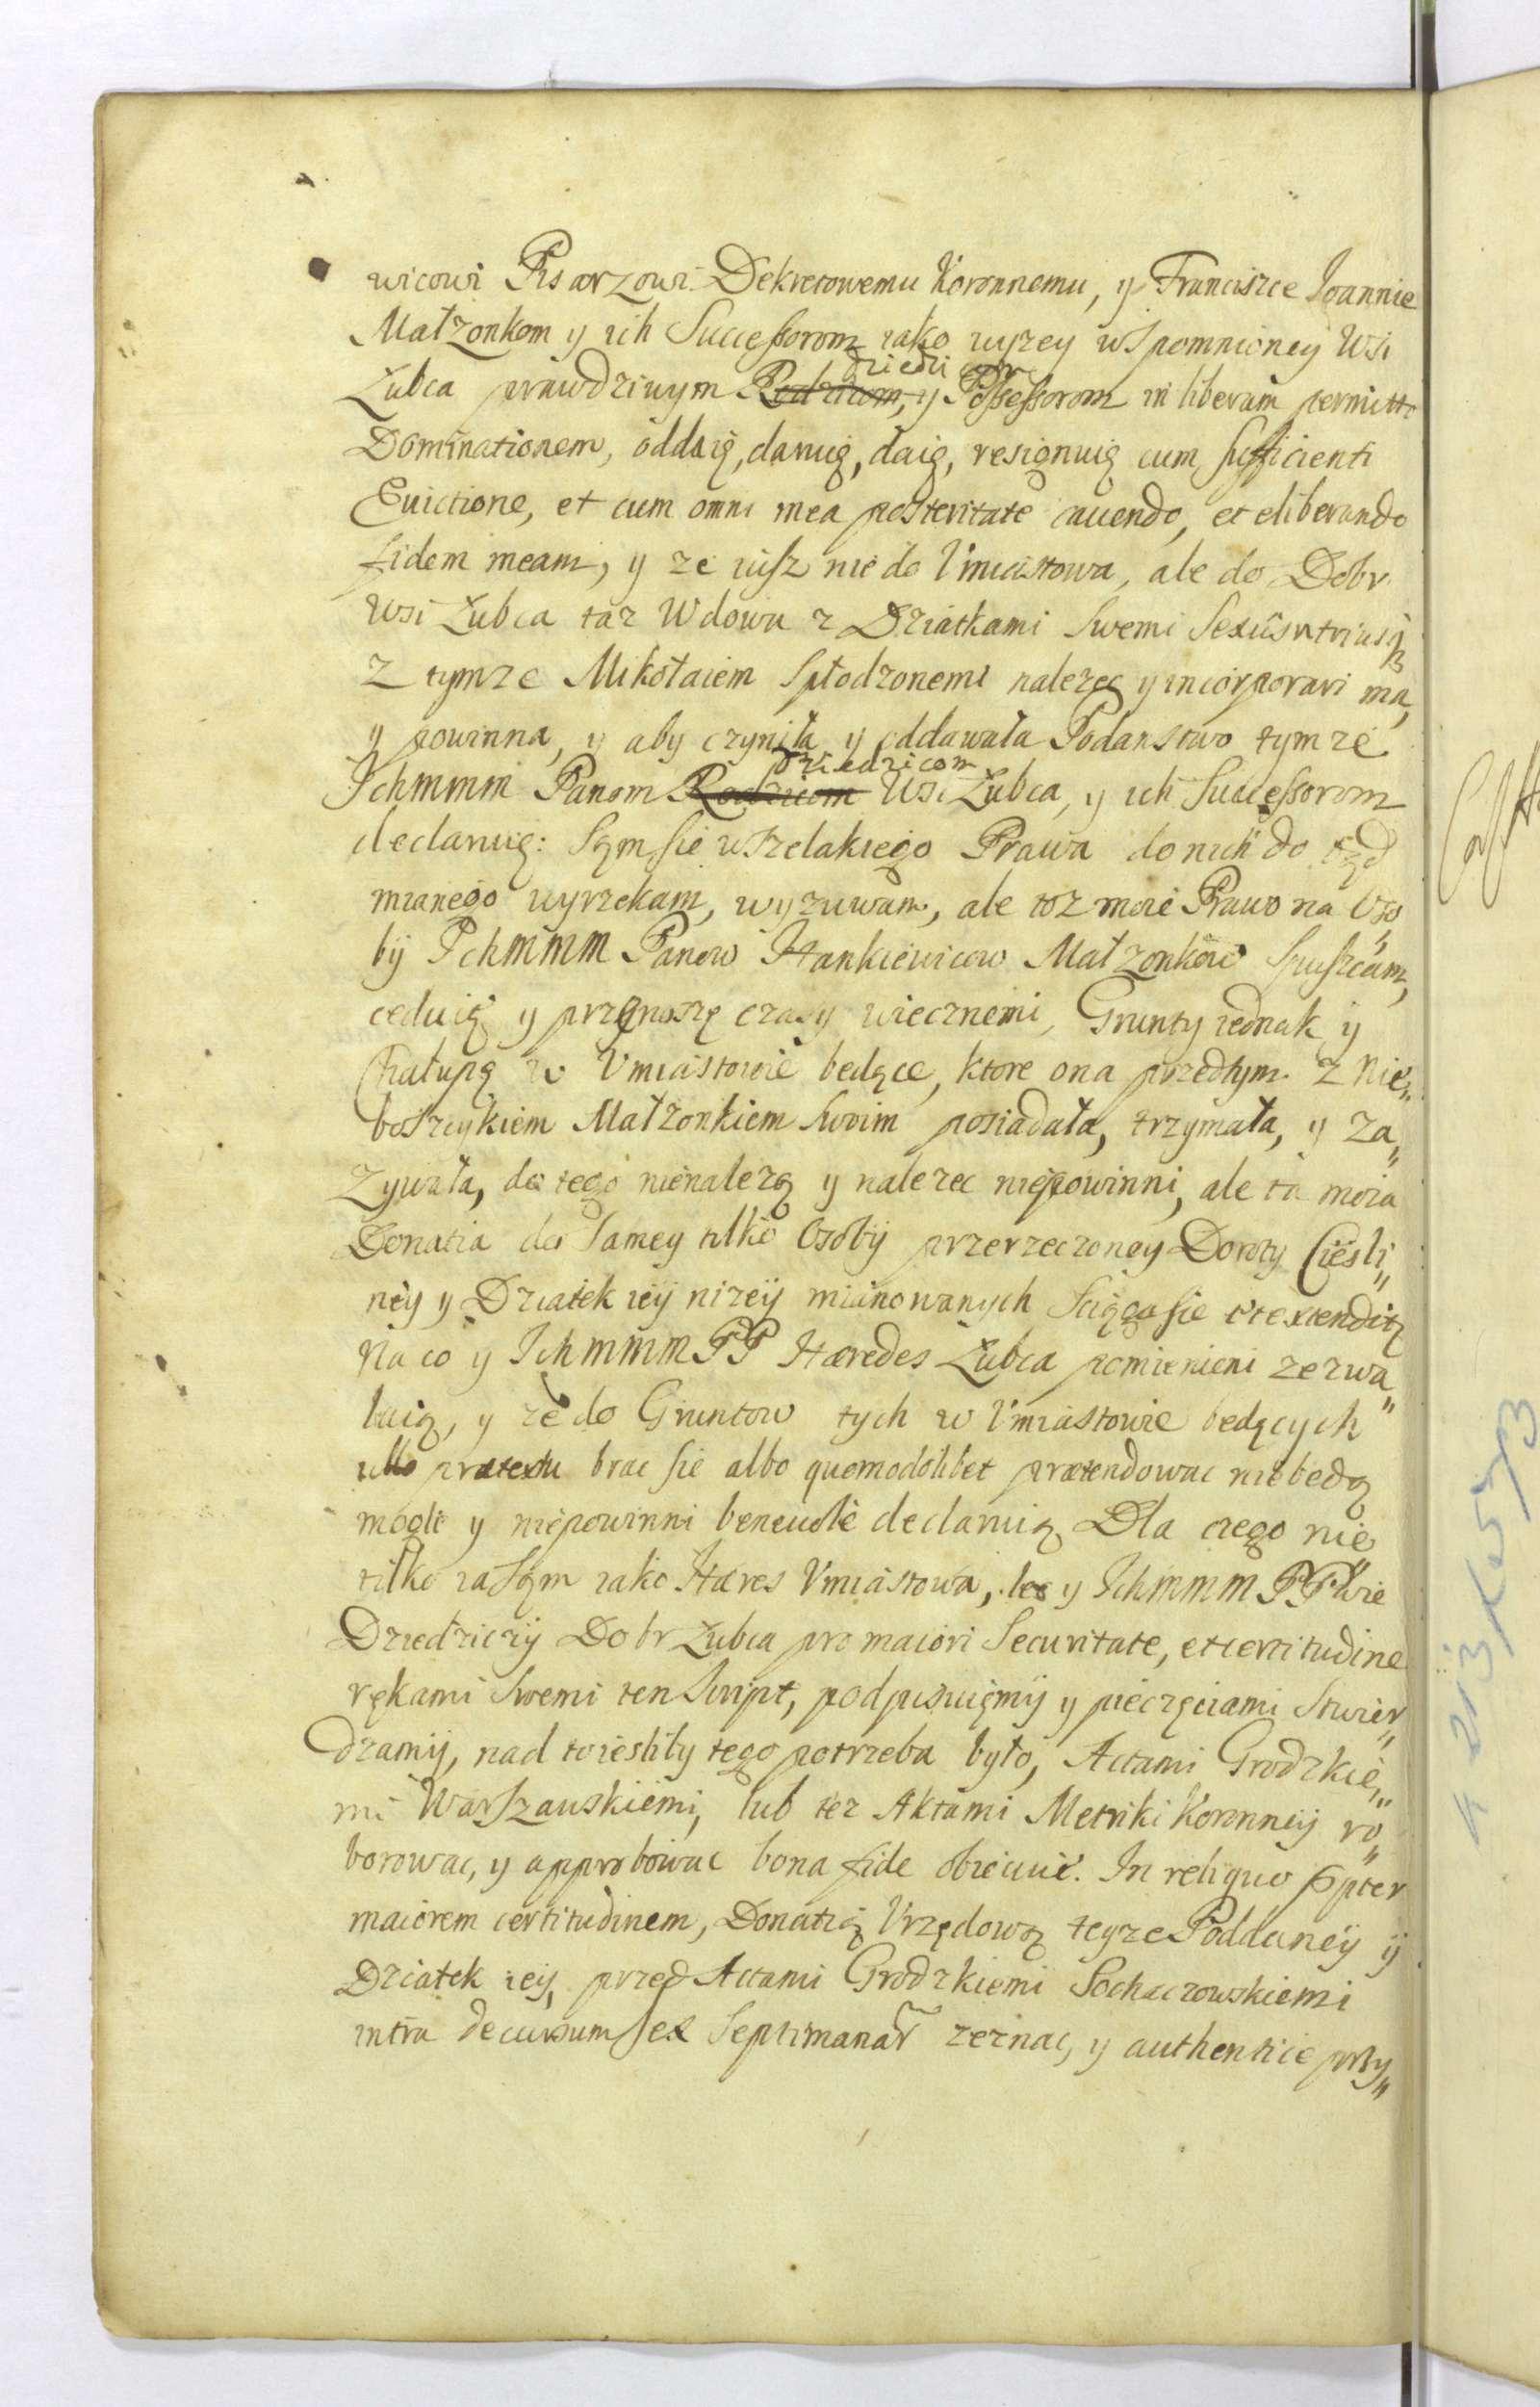 wicowi Pisarzowi Dekretowemu Koronnemu, y Franciszce Ioannie
Małzonkom y ich Successorom iako wyzey wspomnioney Wsi
dziedicom
Zubca prawdziwym Rodzicom, y Possessorom in liberam permitto
Dominationem, oddaię, daruię, daię, resignuię cum sufficienti
Euictione, et cum omni mea posteritate cauendo, et eliberando
fidem meam, y ze iusz nie do Vmiastowa, ale do Dobr
Wsi Zubca taz Wdowa z Dziatkami Swemi Sexus utriusq
z tymze Mikołaiem Spłodzonemi nalezec y incorporari ma,
y powinna, y aby czyniła y oddawała Podanstwo tymze
Dziedzicom
Ichmmm Panom Rodzicom Wsi Zubca, y ich Successorom
declaruię: Sąm sie wszelakiego Prawa do nich do tąd
mianego wyrzekam, wyzuwam, ale toz moie Prawo na Oso
by Ichmmm Panow Hankiewicow Małzonkow Spuszcam,
ceduię y przęnoszę czasy wiecznemi, Grunty iednak y
Chałupę w Vmiastowie będące, ktore ona przedtym z Nie„
boszczykiem Małzonkiem Swoim posiadała, trzymała, y Za„
zywała, do tego nienalezą y nalezec niepowinni, ale ta moia
Donatia do Samey tilko Osoby przerzeczoney Doroty Ciesli„
ney y Dziatek iey nizey mianowanych Sciąga sie et extenditz
Na co y Ichmmm PP Hæredes Zubca pomienieni zezwa„
laią, y ze do Gruntow tych w Vmiastowie będących
ullo prætextu brac sie albo quomodolibet prætendowac niebedą
mogli y niepowinni beneuole declaruią. Dla czego nie
tilko ia Sąm iako Hæres Vmiastowa, lec y Ichmmm PP wie
Dziedziczy Dobr Zubca pro maiori Securitate, et certitudine
rękami Swemi ten Script, podpisuiemy y pieczęciami Stwier„
dzamy, nad to iesliby tego potrzeba było, Actami Grodzkie„
mi Warszauskiemi, lub tez Aktami Metriki Koronney ro„
borowac, y approbowac bona fide obiecuie. In reliquo ppter
maiorem certitudinem, Donatią Vrzędową teyze Poddaney y
Dziatek iey, przed Actami Grodzkiemi Sochaczowskiemi
intra decursum sex Septimanar zeznac, y authentice przy„